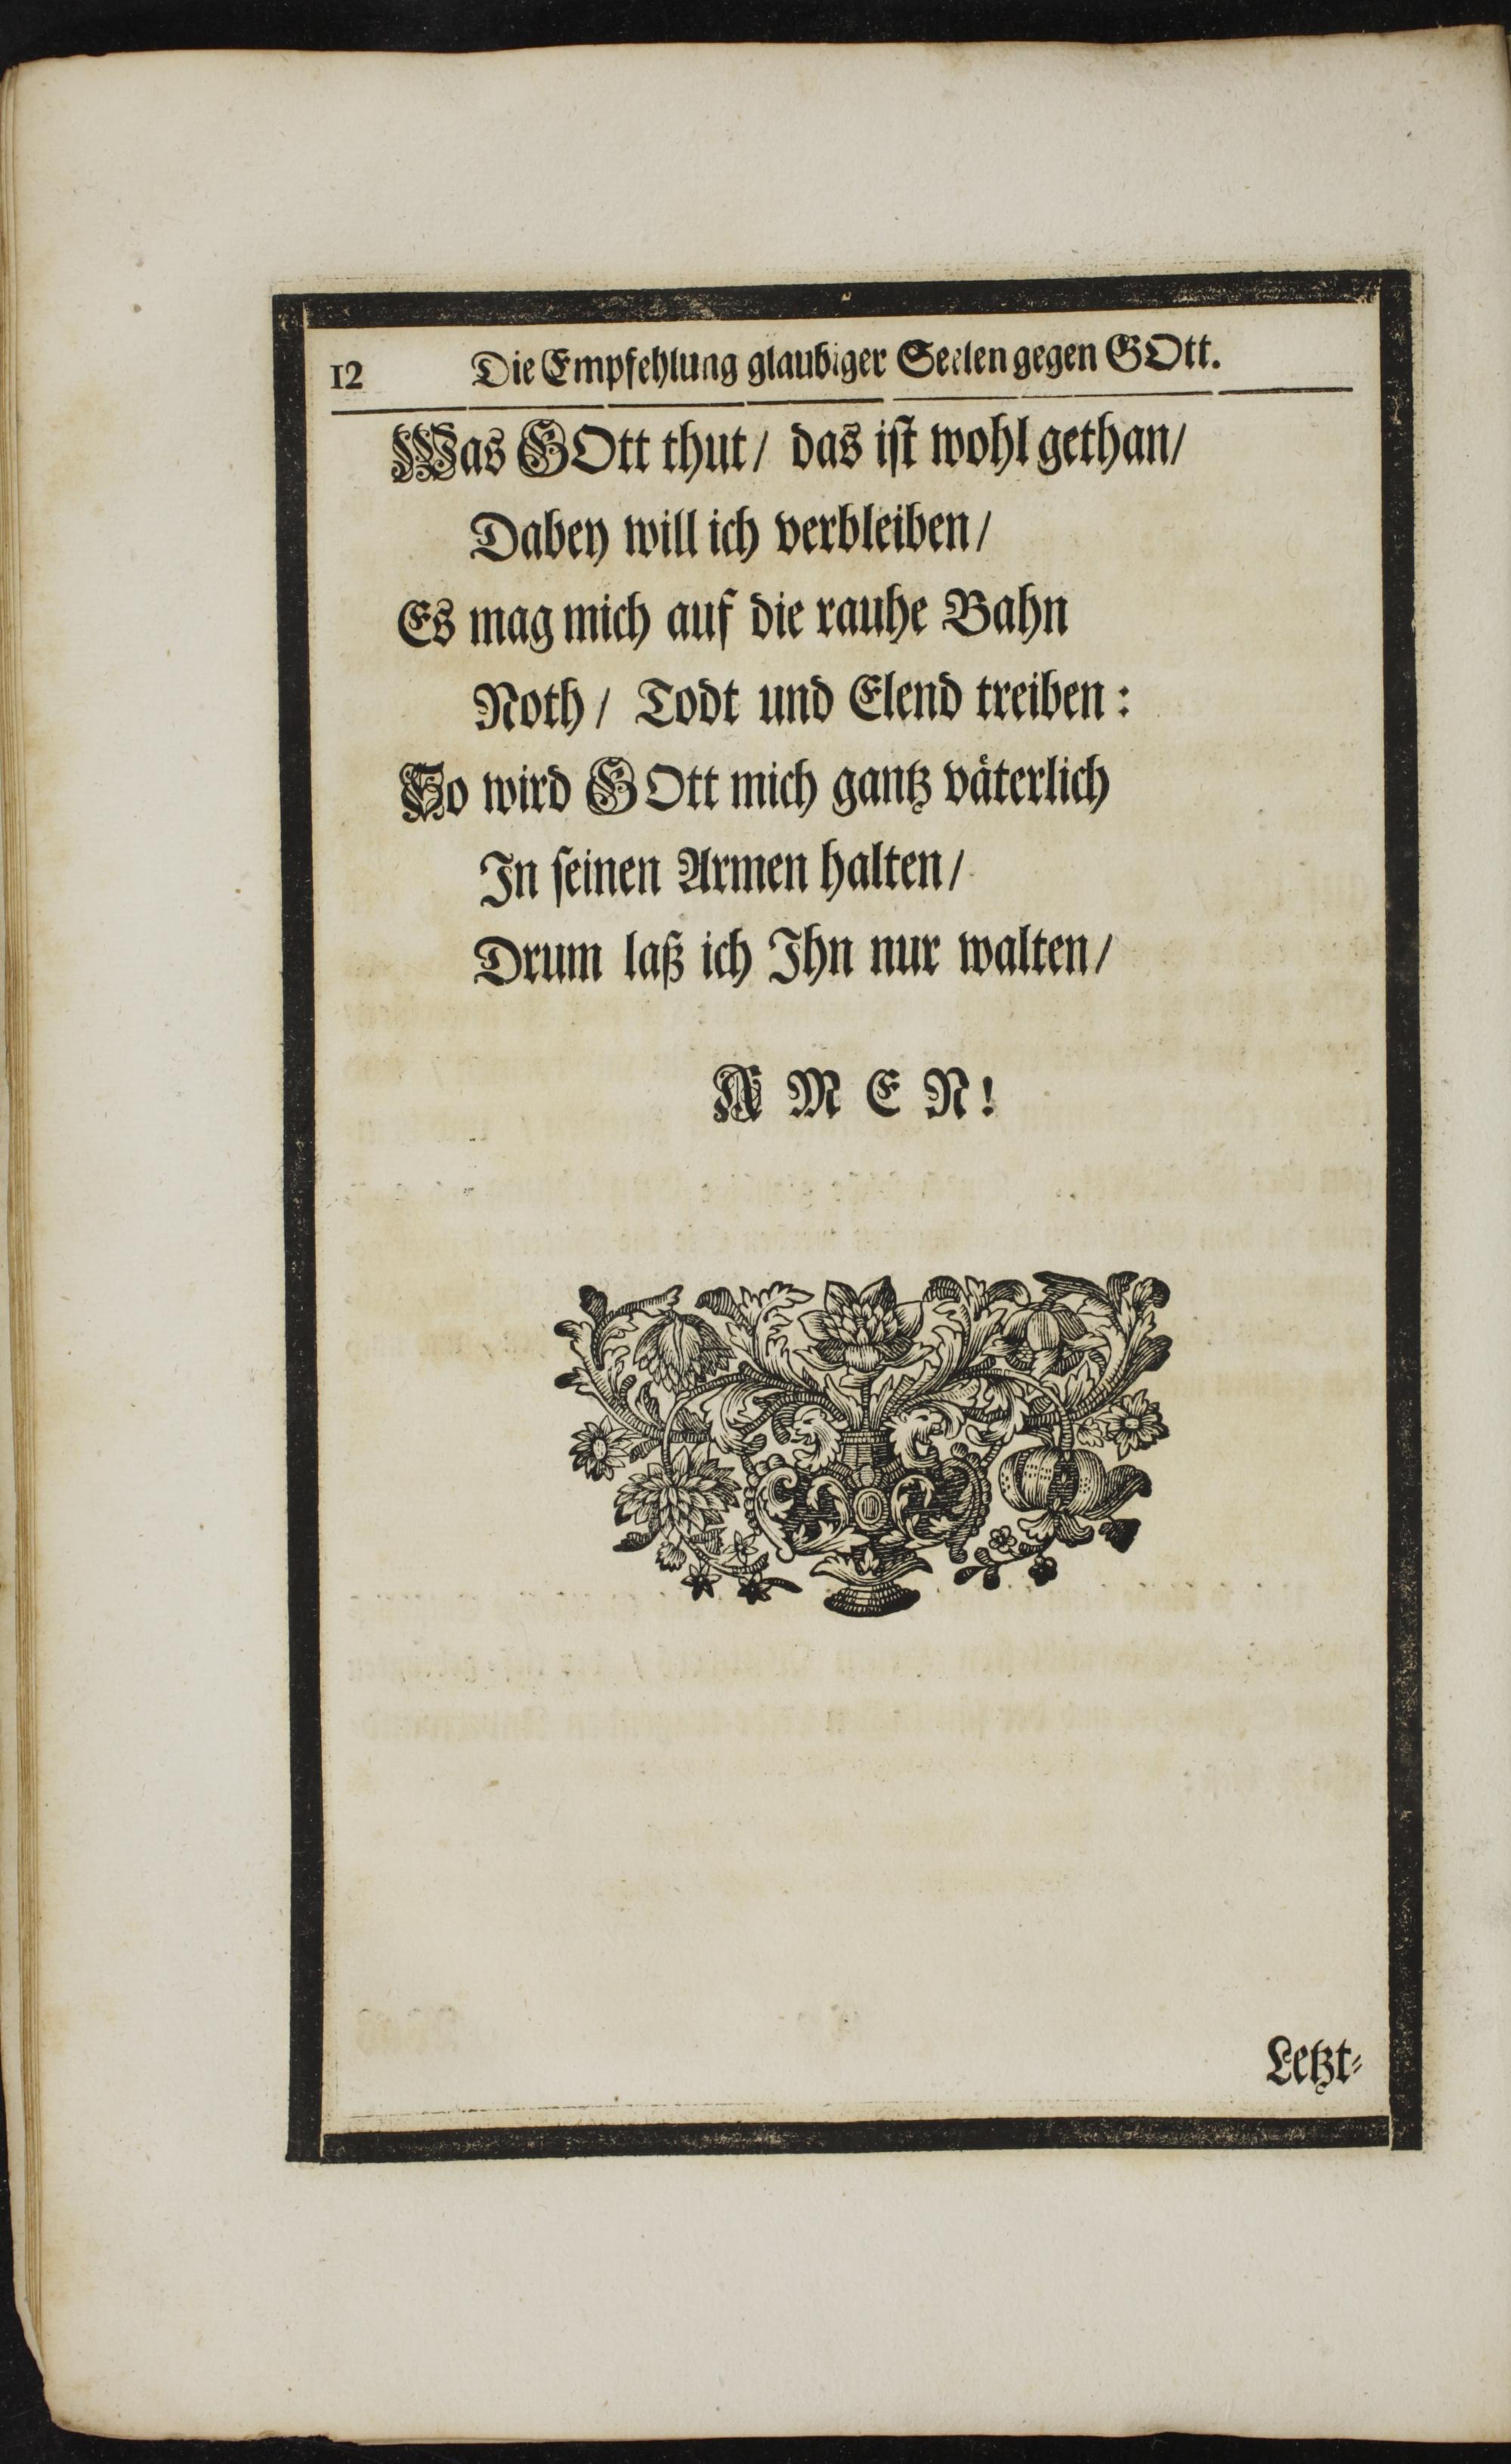 12 Die Empfehlung glaubiger Seelen gegen GOtt.
Was GOtt thut/ das ist wohl gethan/
Dabey will ich verbleiben/
Es mag mich auf die rauhe Bahn
Noth/ Todt und Elend treiben:
So wird GOtt mich gantz väterlich
In seinen Armen halten/
Drum laß ich Ihn nur walten/
A M E N!
Letzt-